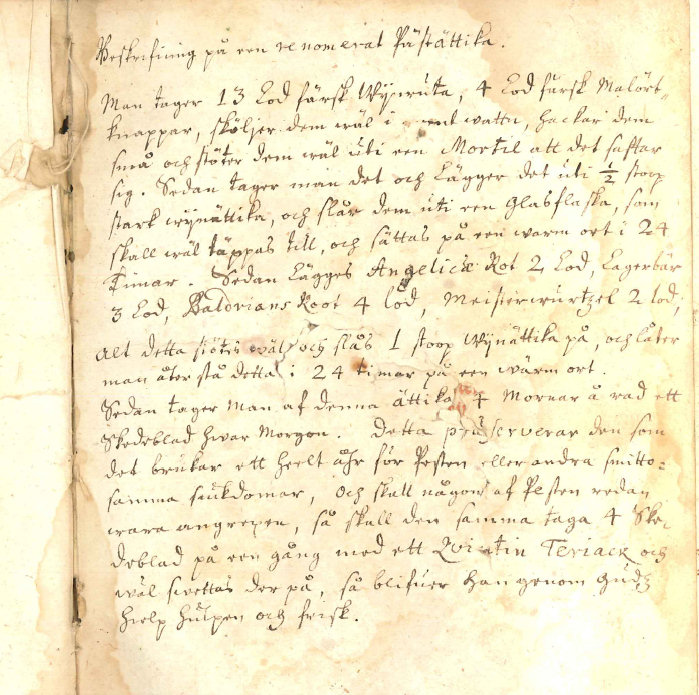 Beskrifning på een renomerat Pästättika.
Man tager 13 Lod färsk Wijnruta, 4 Lod färsk Malört-
knappar, sköljer dem wäl i watn, hackar dem
små och stöter dem wäl uti een Mortil att det saftar
sig. Sedan tager man det och Lägger det uti ½ stoop
stark wynättika, och slår dem uti een Glasflaska, som
skall wäl täppas till, och sättas på een warm ort i 24
Timar. Sedan Lägges Angelicæ Rot 2 Lod, Lagerbär
3 Lod, Baldrians Root 4 lod, Meisterwurtzel 2 lod,
alt detta stötes wäl och slås 1 stoop Wynättika på, och låter
man åter stå detta i 24 timar på een wärm ort.
Sedan tager Man af denna ättika 4 Mornar å rad ett
Skedeblad hwar Morgon. Detta præserverar den som
det brukar ett heelt åhr för Pesten eller andra smitto-
samma siukdomar, och skall någon af Pesten redan
wara angrepen, så skall den samma taga 4 Ske-
deblad på een gång med ett Qvintin Teriack och
wäl swettas der på, så blifuer han genom Gudz
hielp hulpen och frisk.